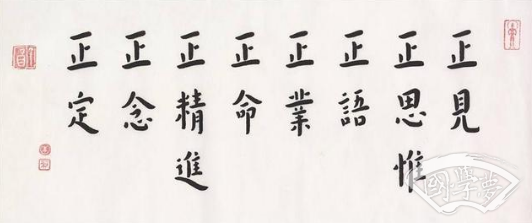 正見
正思惟
正語
正業
正命
正精進
正念
正定
國學夢